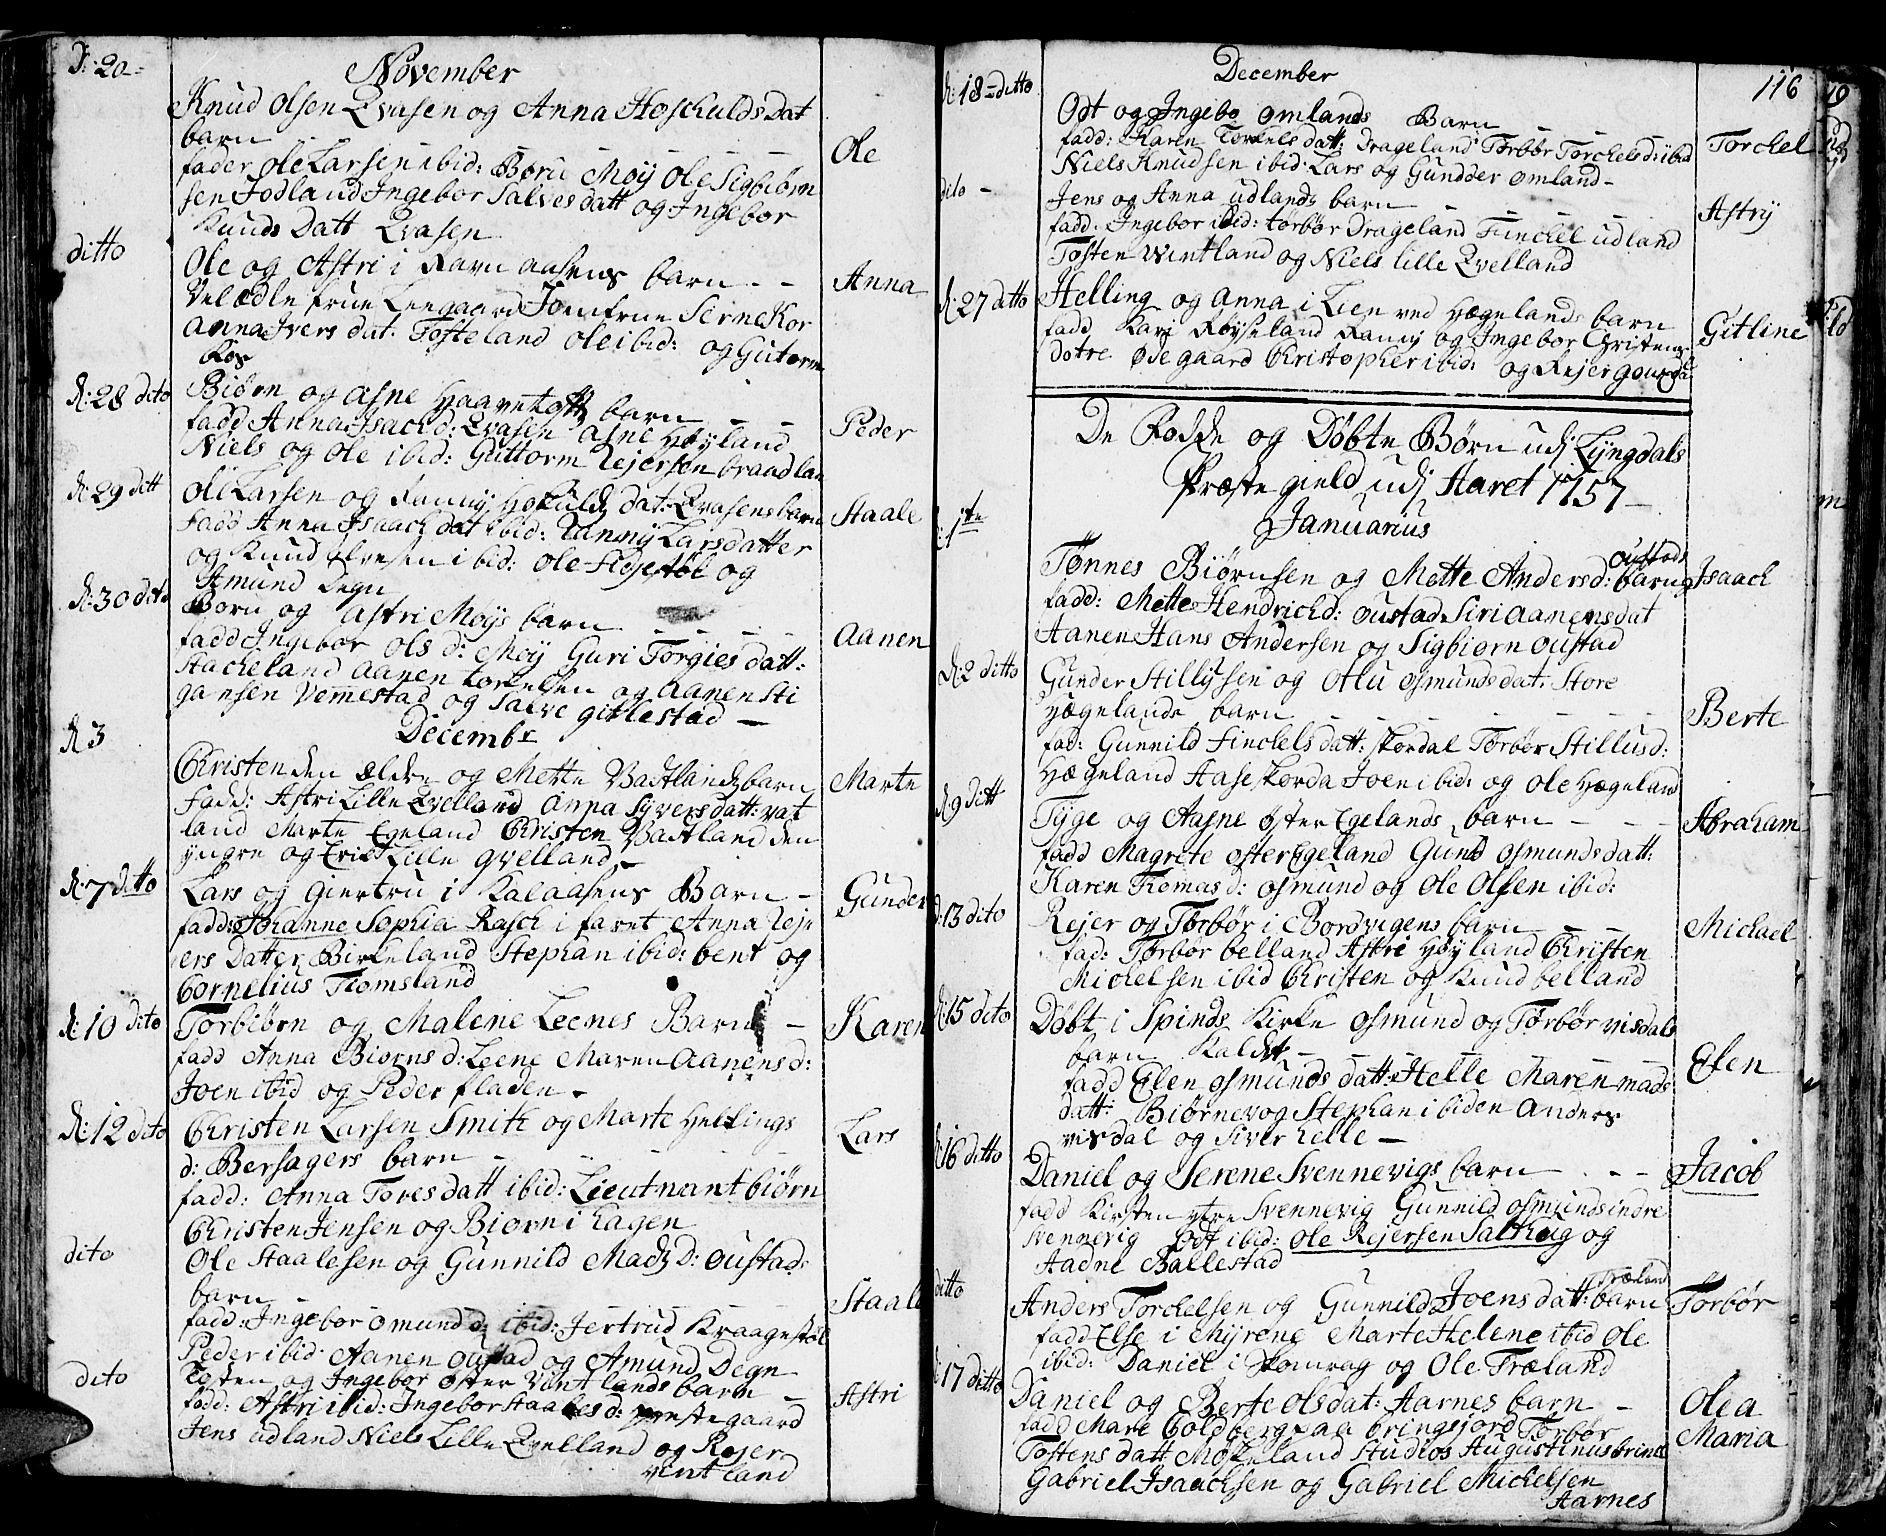 November
d: 20
Knud Olsen Qvasen og Anna Hoskulds Dat
barn
Ole
fader Ole Larsen ibid: Børu Moÿ Ole Sigbiørn
sen Jødland Ingebor Salvesdatt og Ingebor
Knuds Datt Qvasen
ditto
Ole og Astri i Ravnaasens barn
Anna
Velædle frue Leegaard Jomfrue Serne Kor
Anna Ivers dat: Tosteland Ole ibid: og Gutorm
Kos
d: 28 dito
Biørn og Asne Haavetofts barn
Peder
fadd Anna Isachd: Qvasen Asne Høyland
Niels og Ole ibid: Guttorm Rejersen braadlan
d: 29 ditt
Ole Larsen og Ranny Hoskulds dat: Qvasens barn
Staale
fadd Anna Isaach dat ibid: Ranny Larsdatter
og Knud Olesen ibid: Ole Fidjestøl og
Amund Degn
d: 30 dito
Born og Astri Moÿs barn
Aanen
fadd Ingebor Ols d: Moÿ Guri Torgies datt:
Stacheland Aanen Torkelsen og Aanen Sti
gansen Vemestad og Salve Gitlestad
Decembr
d 3
Christen den Eldre og Mette Vastlands barn
Marte
fadd: Astri Lille Qvelland Anna Syversdatt: Vat
land Marte Egeland Christen Vastland den
yngre og Erik Lille Qvelland
d: 7 ditto
Lars og Giertru i Kalaasens Barn
Gunder
fadd: Johanne Sophia Rasch i faret Anna Reje
ers Datter Birkeland Stephan ibid: bent og
Cornelius Tomsland
d: 10 dito
Torbiørn og Malene Leenes Barn
Karen
fadd Anna Biorns d: Leene Maren Aanens d:
Joen ibid og Peder fladen
d: 12 dito
Christen Larsen Smith og Marte Hellings
Lars
d: Bersagers barn
fadd: Anna Tores datt ibid: Lieutnant biørn
Christen Jensen og Biorn i hagen
dito
Ole Staalesen og Gunnild Mads D: Oustads
barn
Staale
fadd: Ingebor Omund d: ibid: Jertrud Kraagestøl
Peder ibid: Aanen Oustad og Amund Degn
dito
Tosten og Ingebor Oster Vintlands barn
Astri
fadd: Astri ibid: Ingebor Staales d: Prestegaard
Jens udland Niels Lille Qvelland og Rejer
Vintland
December
116
d: 18 ditto
Odt og Ingebo Omlands Barn
Torchel
fadd: Karen Torkels datt: Drageland Torbør Torchelsd: ibid
Niels Knudsen ibid: Lars og Gundder Omland
dito
Jens og Anna udlands barn
Astrÿ
fadd: Ingebor ibid: torbør Drageland Finckel udland
Tosten Wintland og Niels Lille Qvelland
d: 27 ditto
Helling og Anna i Lien ved Hægelands barn
Gitline
fadd Kari Røyseland Ranny og Ingebor Christens
dotre Ødegaard Christopher ibid: og Rejer
De Fødde og Døbte Børn udj Lyngdals
Præste gield udj Aaret 1757
Januarius
d: 1ste
Tønnes Biørnsen og Mette Andersd: Oustads barn
Isaach
fadd: Mette Hendrichd: Oustad Siri Aanensdat
Aanen Hans Andersen og Sigbiorn Oustad
d: 2 ditto
Gunder Stillufsen og Olu Osmunds dat: Store
Hægelands barn
Berte
fad: Gunnild Finckels datt: Skordal Torbør Stillus d:
Hægeland Aase Skorda Joen ibid: og Ole Hægeland
d 9 ditt
Tÿge og Aasne Øster Egelands barn
Abraham
fadd Magrete Øster Egeland Gund Osmunds datt:
Karen Tomas d: Osmund og Ole Olsen ibid:
d: 13 dito
Rejer og Torbør i Bordvigens barn
Michael
fad: Torbør belland Astri Høyland Christen
Michelsen ibid Christen og Knud belland
d: 15 dito
Døbt i Spinds Kirke Osmund og Torbør visdals
barn Kaldet
Elen
fadd Elen Osmunds datt: Helle Maren Mads
datt: Biørnevog Stephan ibiden Anders
visdal og Siver helle
d: 16 ditto
Daniel og Serene Svennevigs barn
Jacob
fadd Kirsten ytre Svennevig Gunnild Osmunds indre
Svennevig Odt ibid: Ole Rejersen Salthug og
Aadne Ballestad
ditto
Anders Torchelsen og Gunnild Joens datt: Træland barn
Torbør
fadd Else i Myrene Marte Helene ibid Ole
ibid: Daniel i Skomrag og Ole Træland
d: 17 ditto
Daniel og Berte Olsdat: Aarnes barn
Olea
Maria
fadd Mare Coldberg paa Bringsjord Torbør
Tostens datt Møskeland Studios Augustinus brinck
Gabriel Isaachsen og Gabriel Michelsen
Aarnes